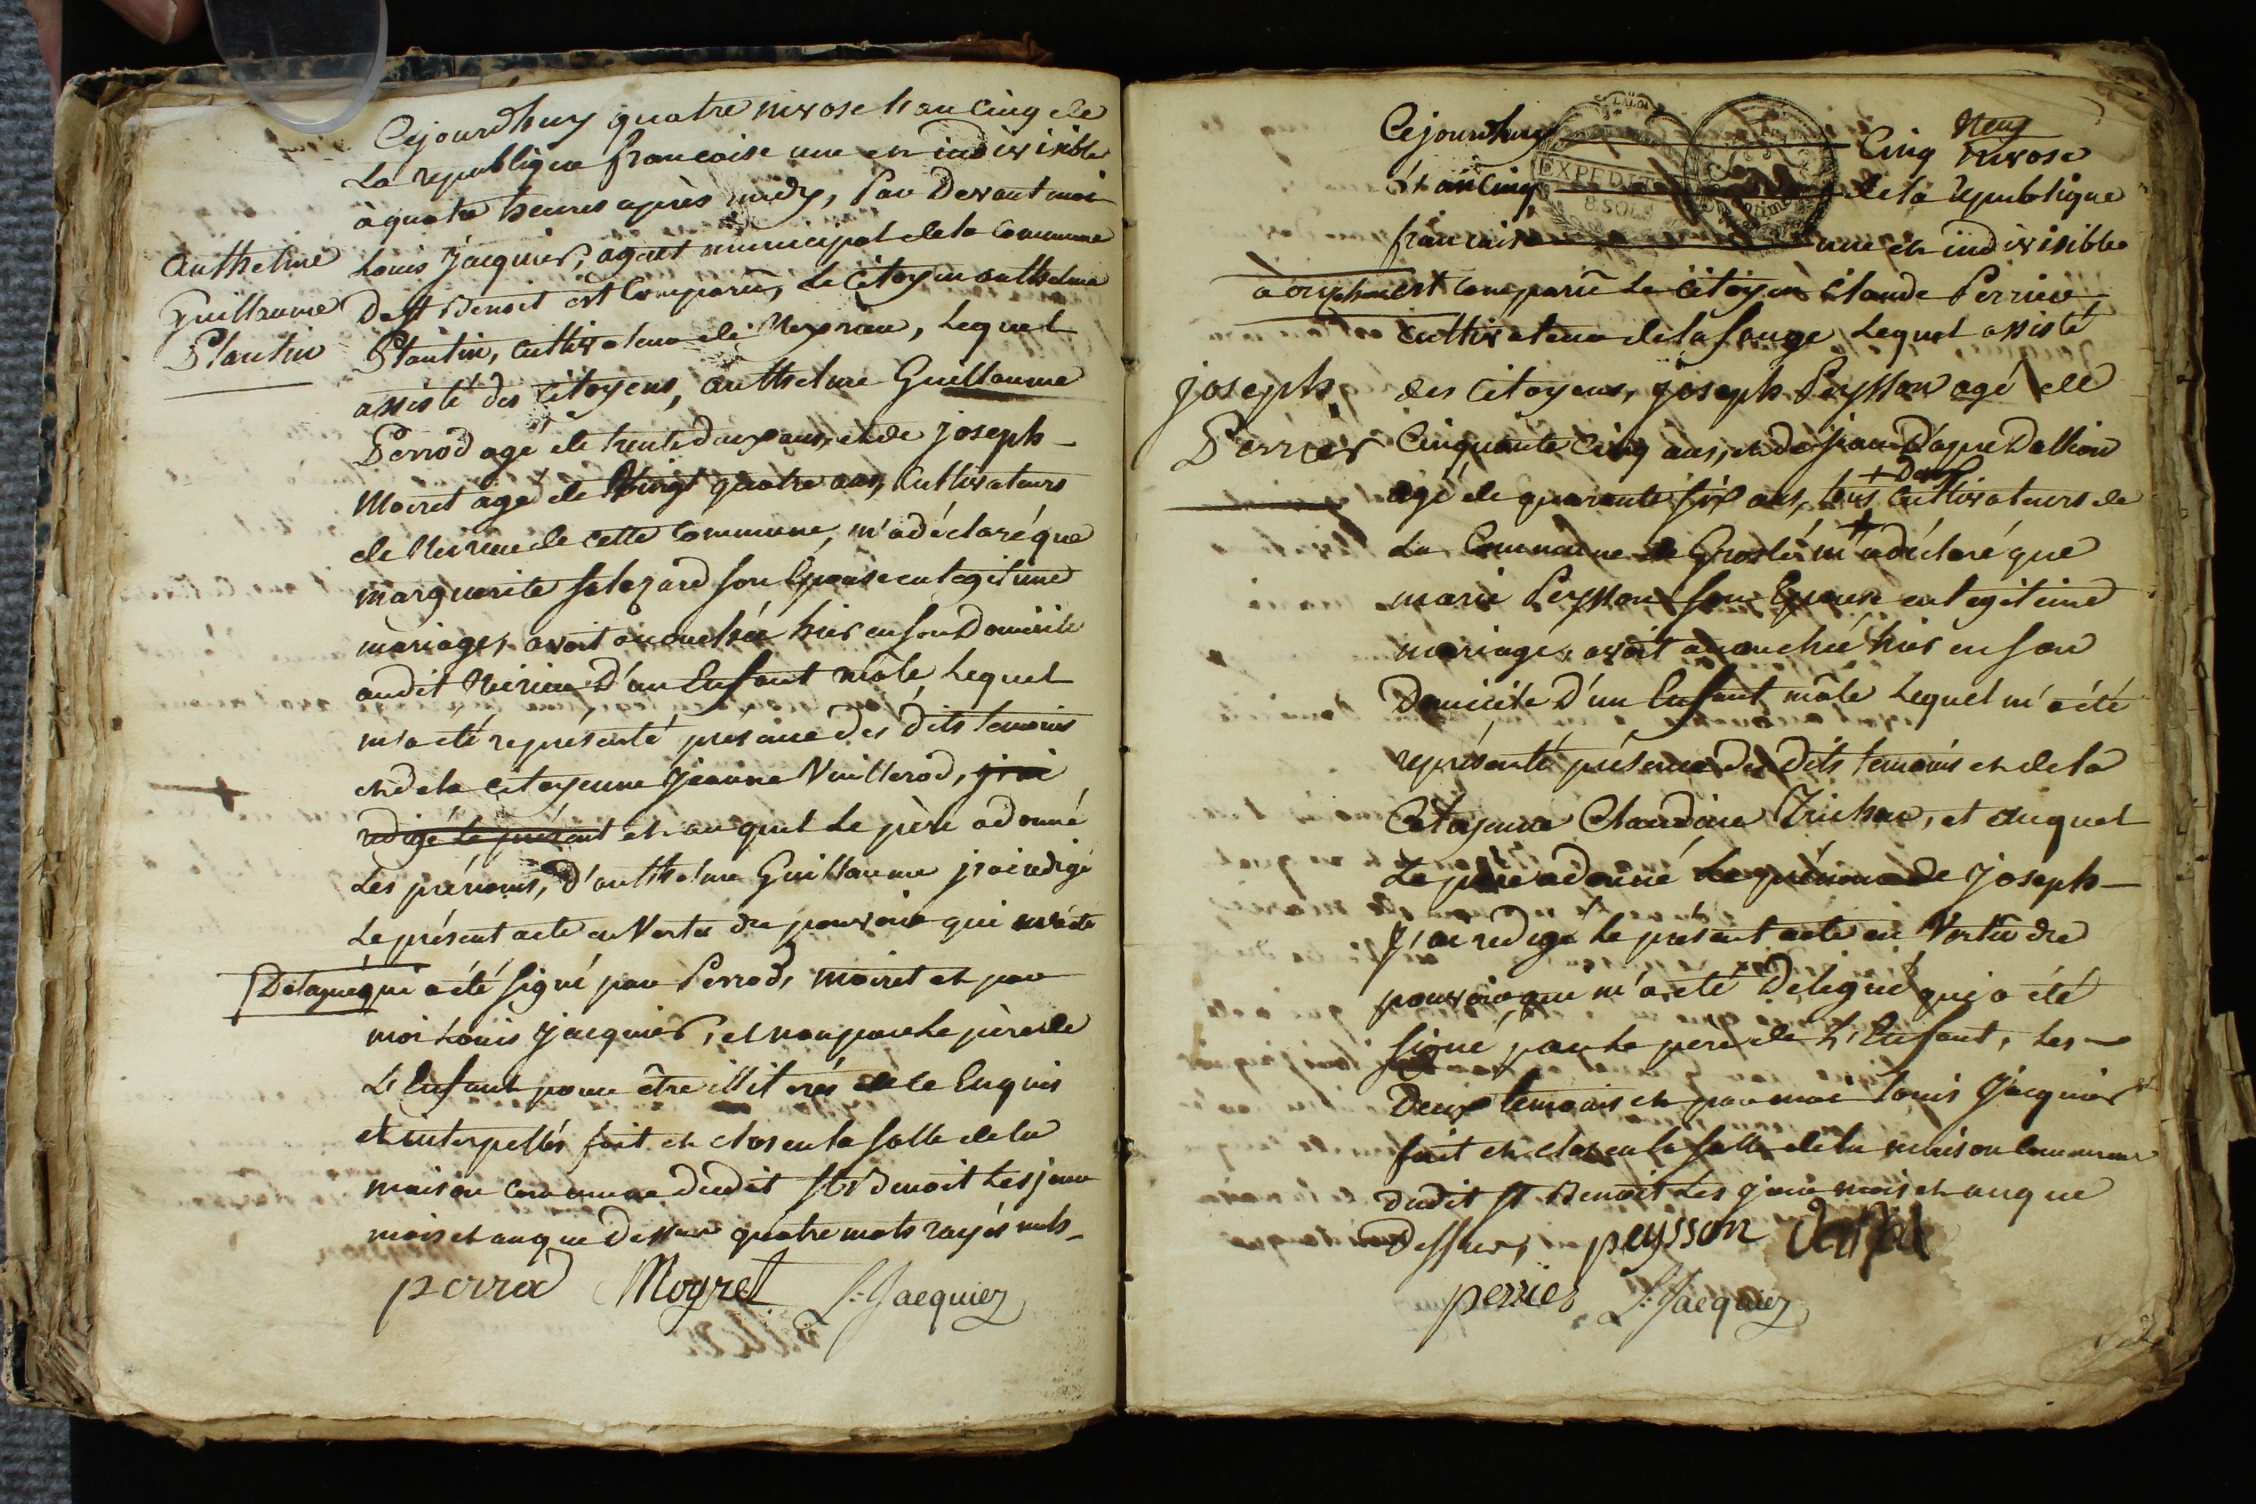 Cejourdhuy quatre nivose h an Cinq de
La republique francaise une et indivisible
à quatre heures après midy, Par Devant moi
Louis Jacquier, agent municipal dela Commune
De St Benoit est Comparu, Le Citoyen anthelme
Plantin, cultivateur de, Lequel
assisté des Citoyens, anthelme Guillaume
Perrod agé de trente deux ans, et de joseph
Moiret agé de Vingt quatre ans, Cultivateurs
de de cette Commune, m'a déclaré que
marguerite Salazard son Epouse en legitime
mariage, avoit accouchée hier en son Domicile
audit D'un Enfant mâle, Lequel
m'a été représenté présence des dits temoins
et de la citoyenne Jeanne Vuillerod, j'rai
redigé le présent et auquel Le père a donné
Les prénoms, D'anthelme Guillaume j'rai redigé
Le présent acte en Vertu du pouvoir qui m'a été
Délaguéqui a été signé par Perrod, moiret et par
moi Louis Jacquier, et non par Le père de
L'Enfant pour être illitérés de ce Enquis
et interpellés fait et clos en la salle de la
maison commune dudit St Benoit Les jour
mois et an que Dessus quatre mots rayés nuls
anthelme
Guillaume
Plantin
perrod Moyret L. Jacquier
Cejourdhuy Cinq Neuf nivose
et an Cinq de la republique
francaise une et indivisible
EXPEDIT
8 SOLS
LA LOI
est comparu Le Citoyen Claude Perrier
cultivateur de la sauge Lequel assisté
des Citoyens, joseph Peysson agé de
Cinquante Cinq ans, et de
agé de quarante six ans, tous + Deux Cultivateurs de
La Commune de Groslé m'a déclaré que
marie Peysson son Epouse en legitime
mariage, avoit accouchée hier en son
Domicile D'un Enfant mâle Lequel m'a été
représenté présence des dits temoins et de la
Citoyenne Claudine, et auquel
Le père a donné Le prénom de joseph
j'rai redigé Le présent acte en Vertu du
pouvoir qui m'a été Delegué qui a été
signé par Le père de L'Enfant, Les
Deux temoins et par moi Louis Jacquier
fait et clos en la salle de la maison commune
dudit St Benoit Les jour mois et an que
Dessus, peysson
joseph
Perrier
perrier L. Jacquier